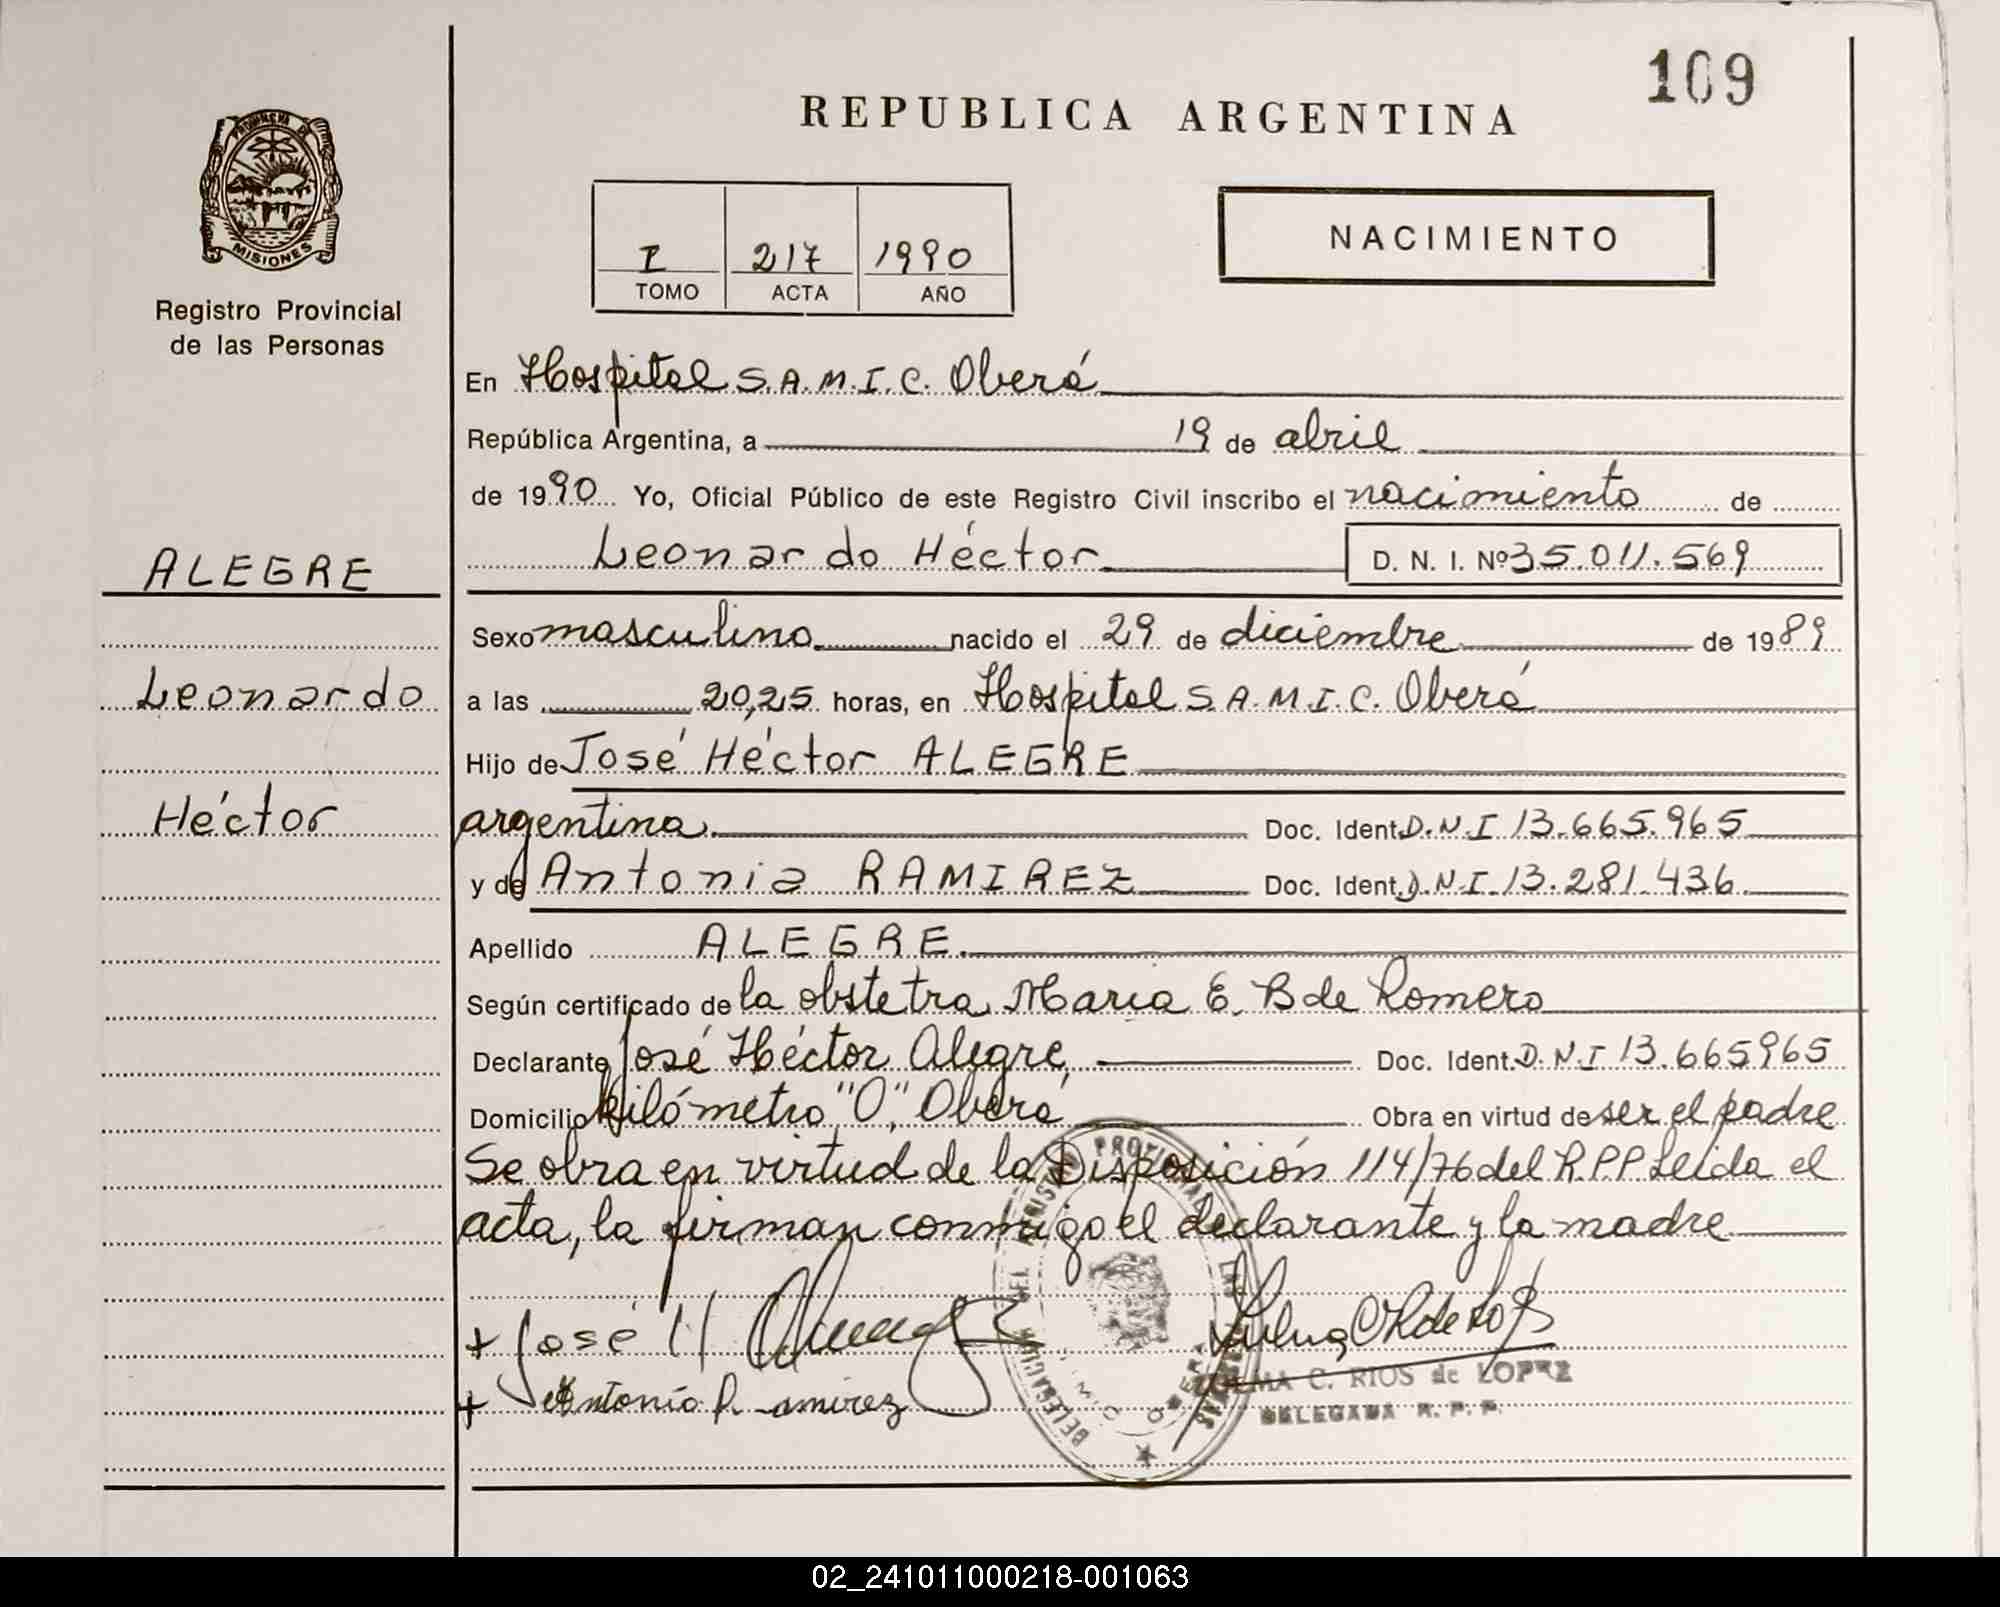 109
REPUBLICA ARGENTINA
PROVINCIA DE
MISIONES
Registro Provincial
de las Personas
I 217 1990
TOMO ACTA AÑO
NACIMIENTO
En Hospital S.A.M.I.C. Oberá
República Argentina, a 19 de abril
de 1990 Yo, Oficial Público de este Registro Civil inscribo el nacimiento de
Leonardo Héctor D. N. I. Nº 35.011.569
ALEGRE
Leonardo
Héctor
Sexo masculino nacido el 29 de diciembre de 1989
a las 20,25 horas, en Hospital S.A.M.I.C. Oberá
Hijo de José Héctor ALEGRE
argentina Doc. Ident. D.N.I 13.665.965
y de Antonia RAMIREZ Doc. Ident. D.N.I. 13.281.436
Apellido ALEGRE
Según certificado de la obstetra Maria E. B de Romero
Declarante José Héctor Alegre Doc. Ident. D.N.I 13.665965
Domicilio kilómetro "0", Oberá Obra en virtud de ser el padre
Se obra en virtud de la Disposición 114/76 del R.P.P Leida el
acta, la firman conmigo el declarante y la madre
+ José H
+ Antonia Ramirez
C. RIOS de LOPEZ
DELEGADA R. P. P.
02_241011000218-001063